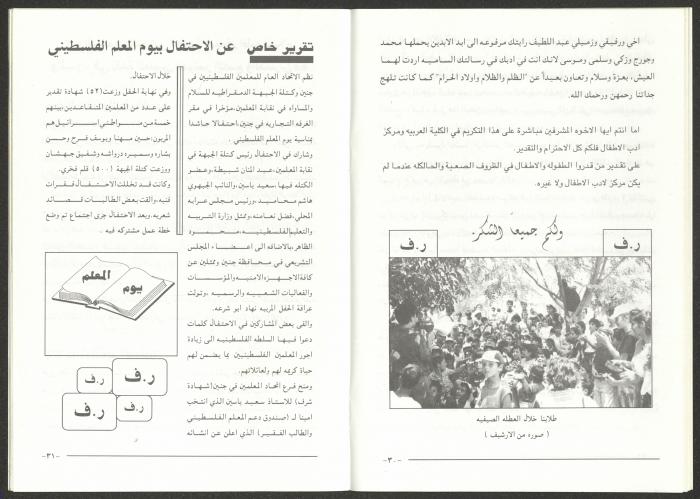 اخي ورفيقي وزميلي عبد اللطيف رايتك مرفوعه الى ابد الابدين يحملها محمد
وجورج وزكي وسلمى وموسى لانك انت في ادبك في رسالتك الساميه اردت لهما
العيش، بعزة وسلام وتعاون بعيداً عن "الظلم والظلام واولاد الحرام" كما كانت تلهج
جداتنا رحمهن ورحمك الله.
اما انتم ايها الاخوه المشرفين مباشرة على هذا التكريم في الكلية العربيه ومركز
ادب الاطفال فلكم كل الاحترام والتقدير.
على تقدير من قدروا الطفوله والاطفال في الظروف الصعبة والحالكله عندما لم
يكن مركز لادب الاطفال ولا غيره.
ولكم جميعاً الشكر.
ر.ف
ر.ف
طلابنا خلال العطله الصيفيه
( صوره من الارشيف )
-٣٠-
تقرير خاص عن الاحتفال بيوم المعلم الفلسطيني
نظم الاتحاد العام للمعلمين الفلسطينيين في
جنين وكتلة الجبهة الدمقراطيه للسلام
والمساواه في نقابة المعلمين،مؤخرا في مقر
الغرفه التجاريه في جنين،احتفالا حاشدا
بمناسبة يوم المعلم الفلسطيني.
وشارك في الاحتفال رئيس كتلة الجبهة في
نقابة المعلمين،عبد المنان شبيطة،وعضو
الكتله فيها،سعيد ياسين،والنائب الجبهوي
هاشم محاميد،ورئيس مجلس عرابه
المحلي،فضل نعامنه،وممثل وزارة التربيه
والتعليم الفلسطينيه،محمود
الظاهر،بالاضافه الى اعضاء المجلس
التشريعي في محافظة جنين وممثلين عن
كافة الاجهزه الامنيه والمؤسسات
والفعاليات الشعبيه والرسميه ،وتولت
عرافة الحفل المربيه نهاد ابو شرعه.
والقى بعض المشاركين في الاحتفال كلمات
دعوا فيها السلطه الفلسطينيه الى زيادة
اجور المعلمين الفلسطينيين بما يضمن لهم
حياة كريمه لهم ولعائلاتهم.
ومنح فرع اتحاد المعلمين في جنين(شهادة
شرف) للاستاذ سعيد ياسين الذي انتخب
امينا لـ (صندوق دعم المعلم الفلسطيني
والطالب الفقير) الذي اعلن عن انشائه
خلال الاحتفال.
وفي نهاية الحفل وزعت(٥٢) شهادة تقدير
على عدد من المعلمين المتقاعدين،بينهم
خمسة من مواطني اسرائيل هم
المربون،حسن مهنا ويوسف فرح وحسن
بشاره وسميره درواشه وشفيق جهشان
ووزعت كتلة الجبهة (٥٠٠) قلم فخري.
وكانت قد تخللت الاحتفال فقرات
فنيه،والقت بعض الطالبات قصائد
شعريه.وبعد الاحتفال جرى اجتماع تم وضع
خطة عمل مشتركه فيه .
يوم المعلم
ر.ف
ر.ف
ر.ف
ر.ف
-٣١-